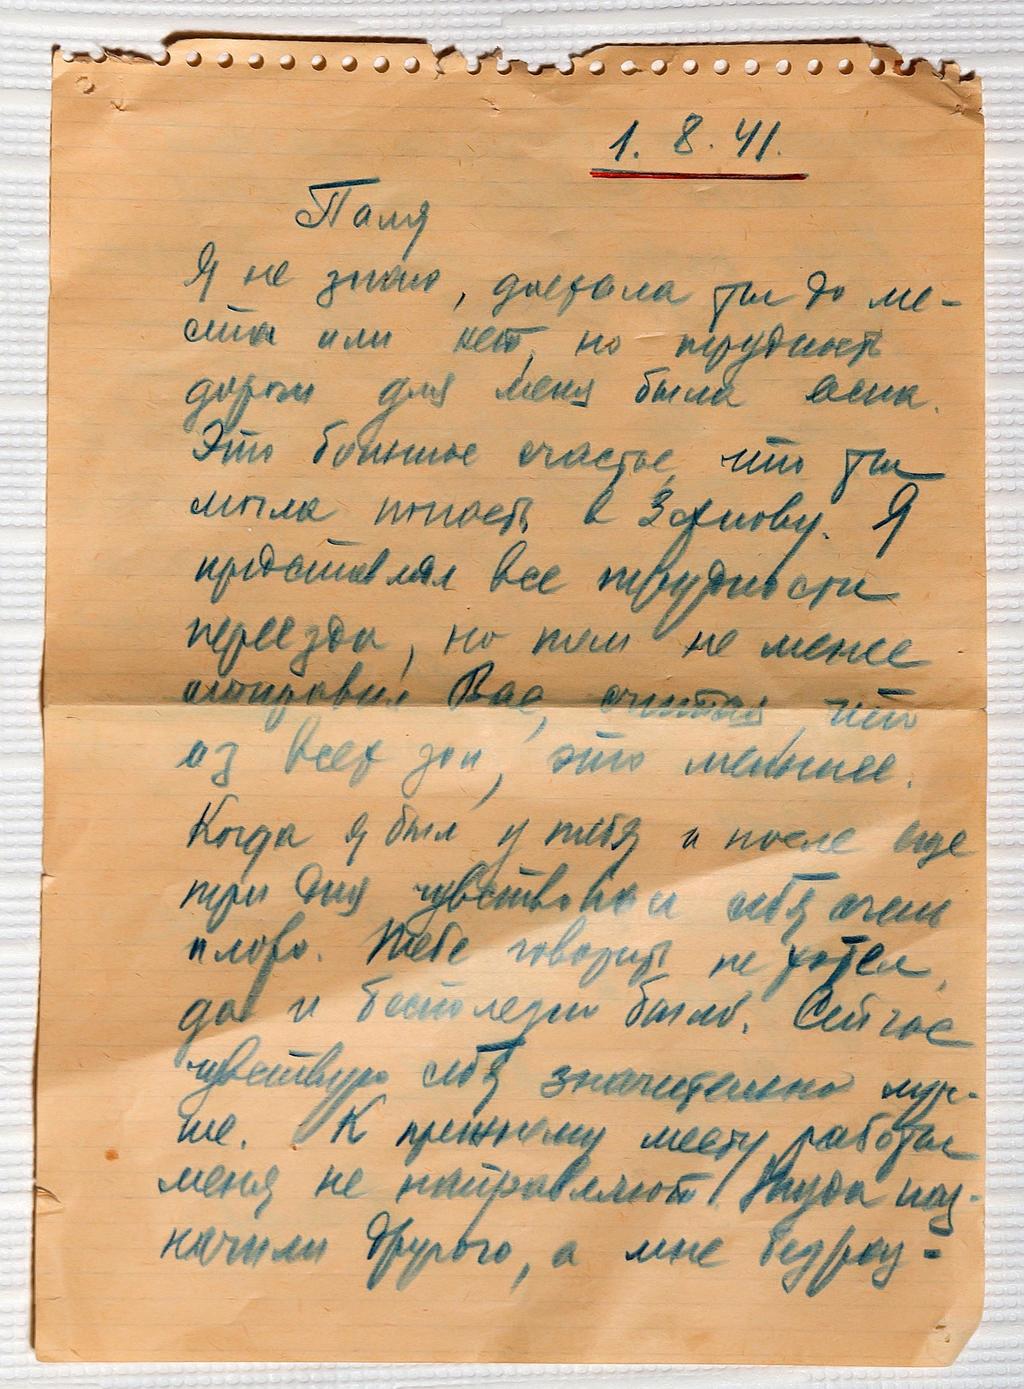 1. 8. 41.
Паля
Я не знаю, доехала ты до ме-
ста или нет, но трудность
дороги для меня была ясна.
Это большое счастье, что ты
могла попасть к Зотову. Я
представлял все трудности
переезда, но тем не менее
отправил Вас, считая, что
из всех зол, это меньшее.
Когда я был у тебя и после еще
три дня чувствовал себя очень
плохо. Тебе говорить не хотел,
да и бесполезно было. Сейчас
чувствую себя значительно луч-
ше. К прежнему месту работы
меня не направляют. Туда наз-
начили другого, а мне